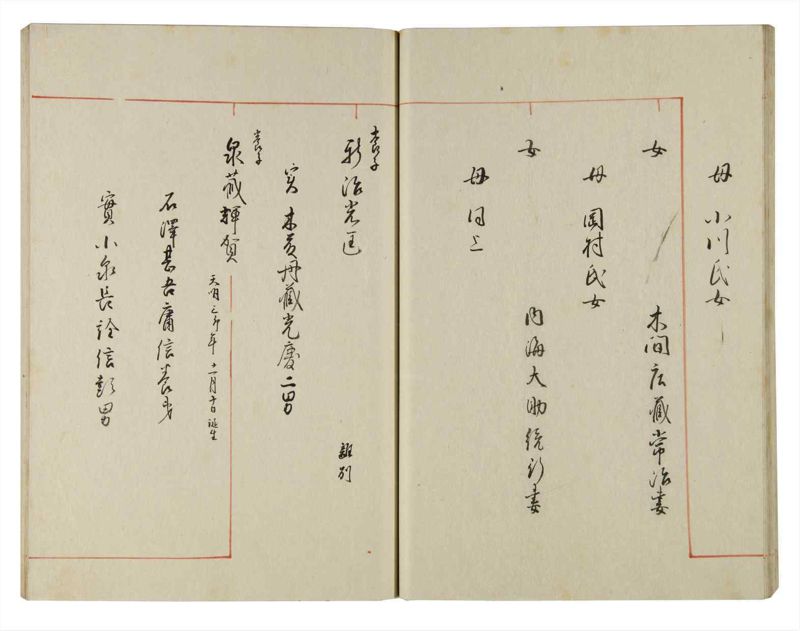 母 小川氏女
女
木間庄藏常治妻
母 岡村氏女
女
内海大助統行妻
母 同上
養子
新治光匡
離別
実 本多丹藏光慶二男
養子
泉藏輝賀
天明三卯年 十一月十日誕生
石澤甚吾庸信養子
實小泉長詮信彭男